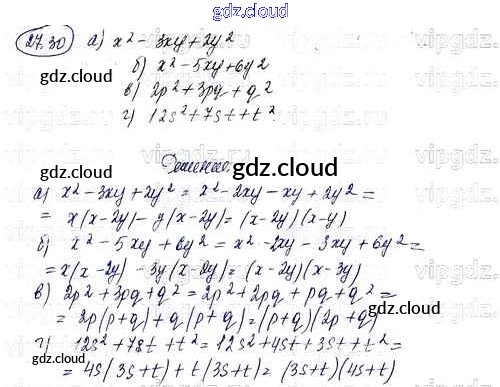 gdz.cloud
27.30 а) x² - 3xy + 2y²
gdz.cloud
б) x² - 5xy + 6y²
в) 2p² + 3pq + q²
г) 12s² + 7st + t²
gdz.cloud
Решение.
gdz.cloud
а) x² - 3xy + 2y² = x² - 2xy - xy + 2y² =
= x(x - 2y) - y(x - 2y) = (x - 2y)(x - y)
б) x² - 5xy + 6y² = x² - 2xy - 3xy + 6y² =
= x(x - 2y) - 3y(x - 2y) = (x - 2y)(x - 3y)
в) 2p² + 3pq + q² = 2p² + 2pq + pq + q² =
= 2p(p + q) + q(p + q) = (p + q)(2p + q)
г) 12s² + 7st + t² = 12s² + 4st + 3st + t² =
= 4s(3s + t) + t(3s + t) = (3s + t)(4s + t)
gdz.cloud
gdz.cloud
gdz.cloud
gdz.cloud